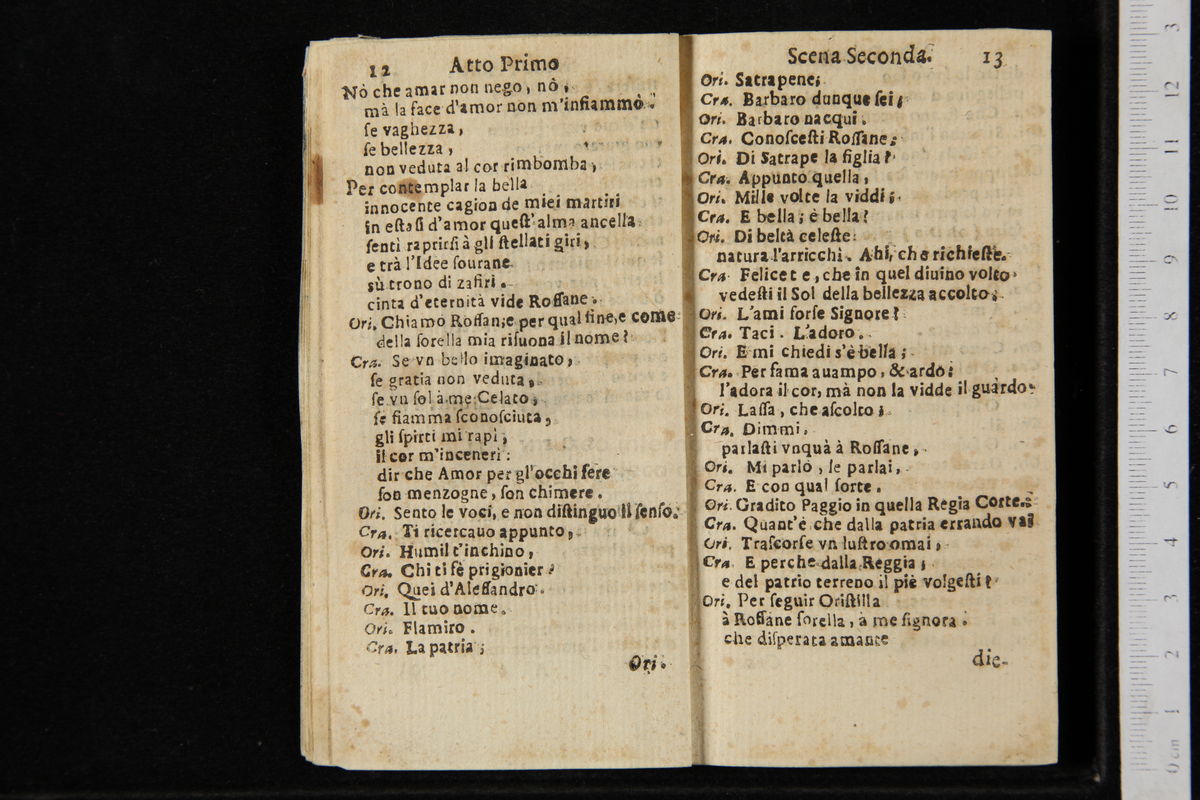 12 Atto Primo
Nò che amar non nego, nò,
mà la face d'amor non m'infiammò.
ſe vaghezza,
ſe bellezza,
non veduta al cor rimbomba,
Per contemplar la bella
innocente cagion de miei martiri
in eſtaſi d'amor queſt' alma ancella
ſentì raprirſi à gli ſtellati giri,
e trà l'Idee ſourane
sù trono di zafiri.
cinta d'eternità vide Roſſane.
Ori. Chiamò Roſſan;e per qual fine,e come
della ſorella mia riſuona il nome?
Cra. Se vn bello imaginato,
ſe gratia non veduta,
ſe vn ſol à me Celato,
ſe fiamma ſconoſciuta,
gli ſpirti mi rapì,
il cor m'incenerì:
dir che Amor per gl'occhi fere
ſon menzogne, ſon chimere.
Ori. Sento le voci, e non diſtinguo il ſenſo.
Cra. Ti ricercauo appunto,
Ori. Humil t'inchino,
Cra. Chi ti fè prigionier?
Ori. Quei d'Aleſſandro.
Cra. Il tuo nome.
Ori. Flamiro.
Cra. La patria;
Ori.
Scena Seconda. 13
Ori. Satrapene;
Cra. Barbaro dunque ſei;
Ori. Barbaro nacqui.
Cra. Conoſceſti Roſſane;
Ori. Di Satrape la figlia?
Cra. Appunto quella,
Ori. Mille volte la viddi;
Cra. E bella; è bella?
Ori. Di beltà celeſte
natura l'arricchì. Ahi, che richieſte.
Cra. Felice t e, che in quel diuino volto
vedeſti il Sol della bellezza accolto;
Ori. L'ami forſe Signore?
Cra. Taci. L'adoro.
Ori. E mi chiedi s'è bella;
Cra. Per fama auampo, & ardo;
l'adora il cor, mà non la vidde il guardo.
Ori. Laſſa, che aſcolto;
Cra. Dimmi,
parlaſti vnquà à Roſſane,
Ori. Mi parlò, le parlai,
Cra. E con qual ſorte.
Ori. Gradito Paggio in quella Regia Corte.
Cra. Quant'è che dalla patria errando vai
Ori. Traſcorſe vn luſtro omai,
Cra. E perche dalla Reggia;
e del patrio terreno il piè volgeſti?
Ori. Per ſeguir Oriſtilla
à Roſſane ſorella, à me ſignora.
che diſperata amante
die-